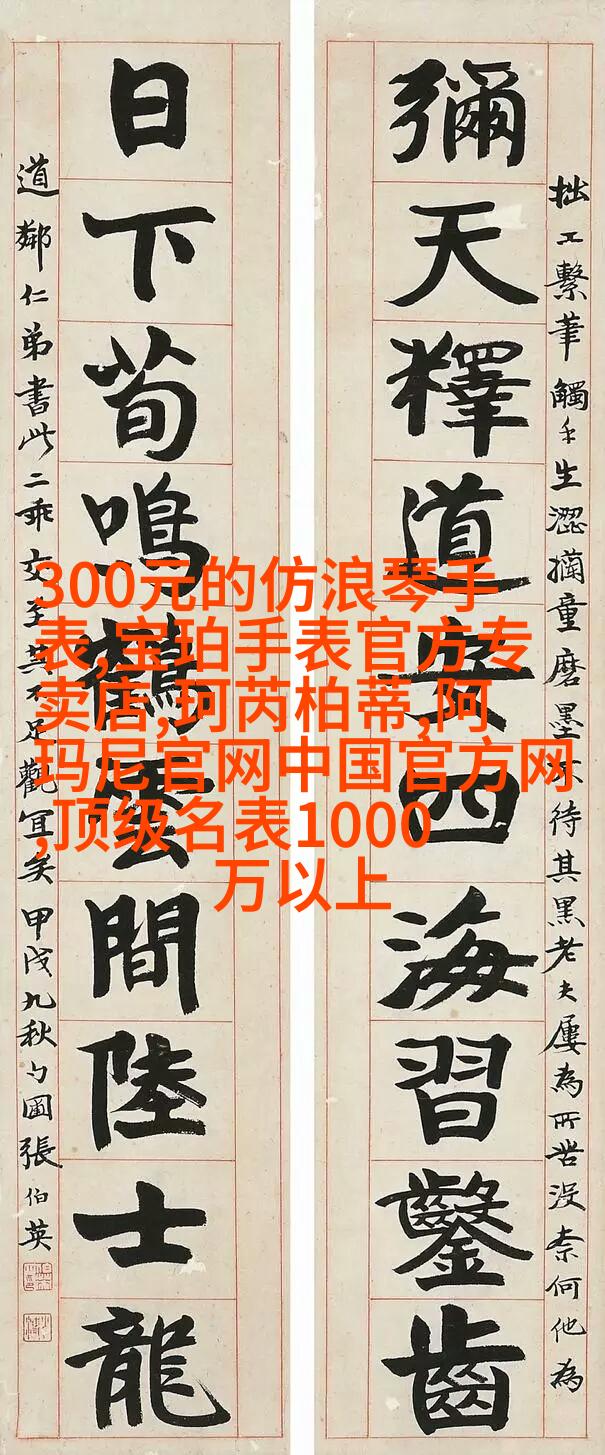 彌天釋道安四海習鑿齒
日下荀鳴鶴雲間陸士龍
拙工繫筆觸手生澀擫童磨墨不待其黑老夫屢為所苦沒柰何他為
道鄰仁弟書此二乖交至其不足觀宜矣甲戌九秋勺圃張伯英
300元的仿浪琴手
表,宝珀手表官方专
卖店,珂芮柏蒂,阿
玛尼官网中国官方网
,顶级名表1000
万以上